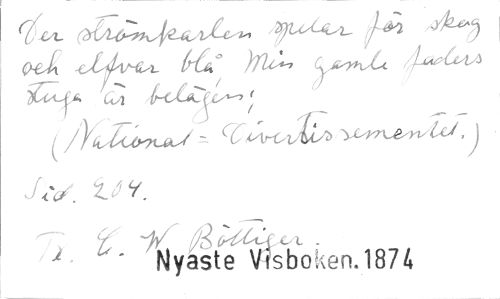 Der strömkarlen spelar för skog
och elfvar blå, Min gamle faders
stuga är belägen;
(National=Divertissementet.)
Sid. 204.
Tx. C. W. Böttiger.
Nyaste Visboken. 1874